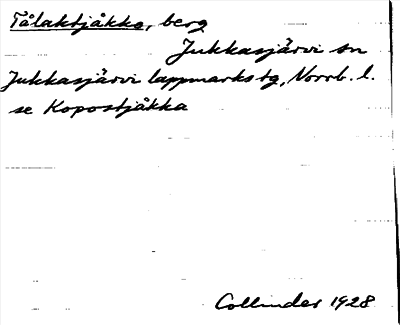 Tålaktjåkko, berg
Jukkasjärvi sn
Jukkasjärvi lappmarkstg, Norrb. l.
se Kopostjåkka
Collinder 1928